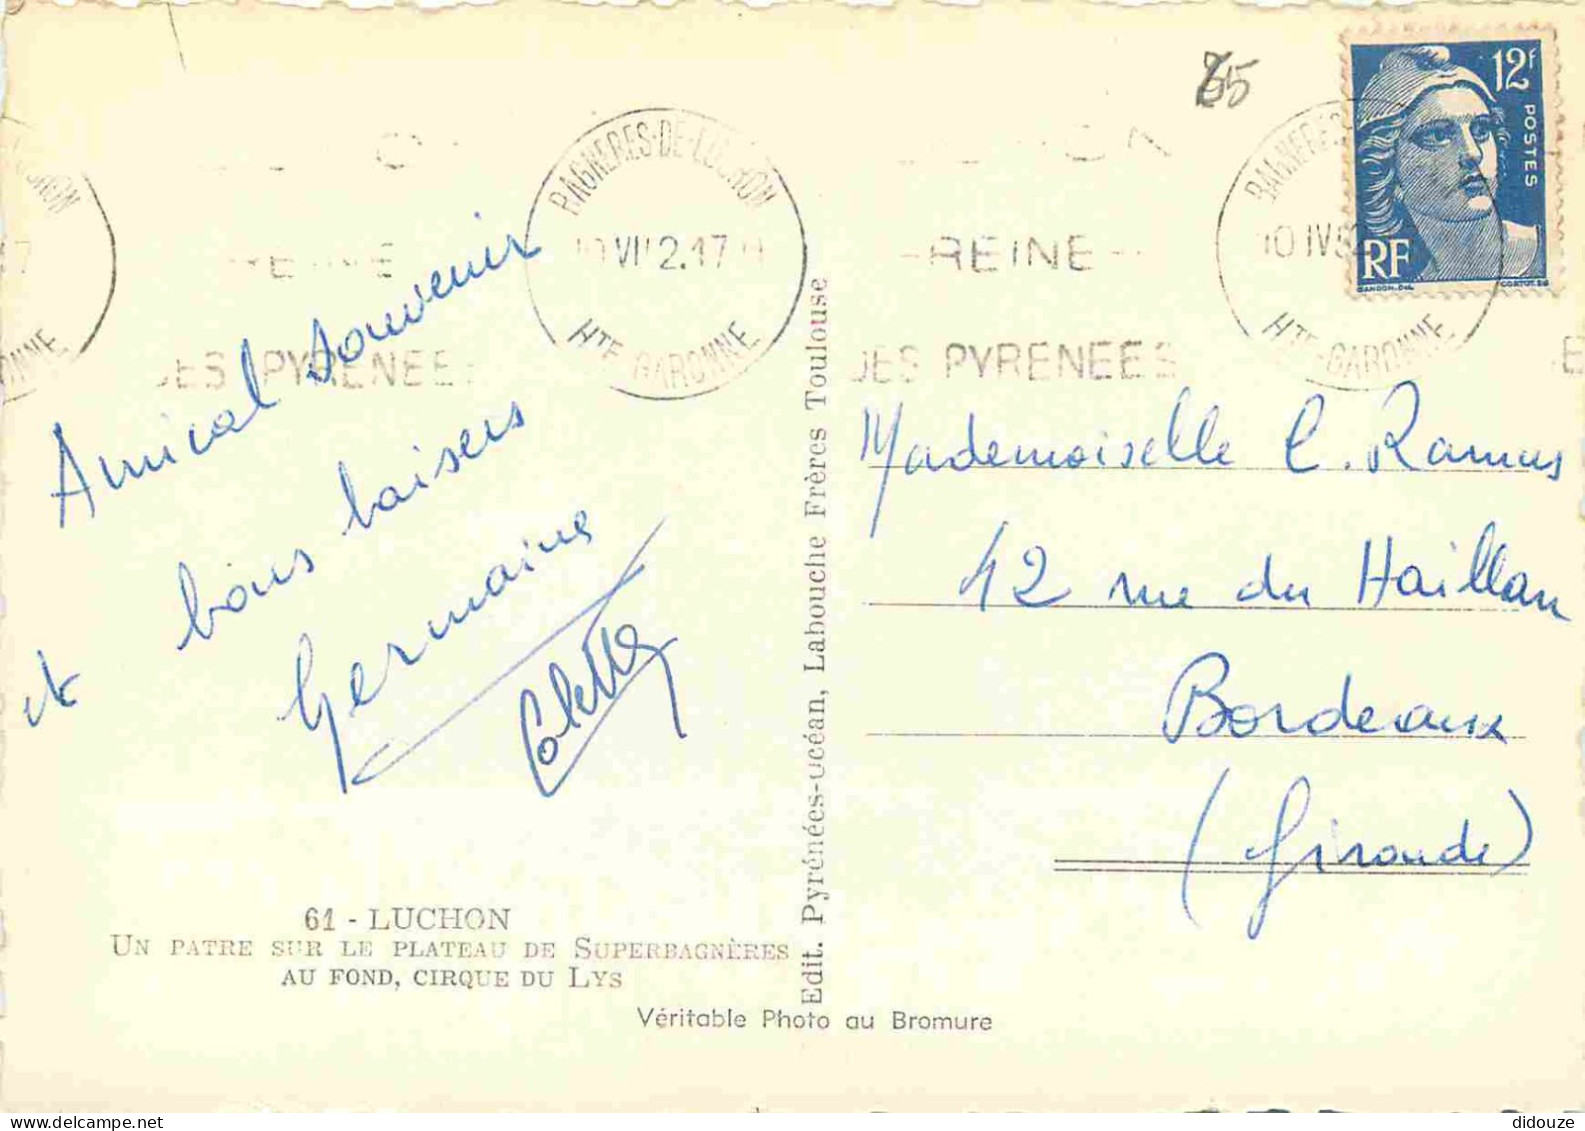 65
12F
POSTES
RF
GANDON.DEL
CORTOT.SC
BAGNERES-DE-LUCHON
VII 2.17
HTE-GARONNE
REINE
DES PYRENEES
BAGNERES
10 IV 5
HTE-GARONNE
REINE
DES PYRENEES
Amical souvenir
et bons baisers
Germaine
Colette
Mademoiselle C. Ramus
42 rue du Haillan
Bordeaux
(Gironde)
Edit. Pyrénées-océan, Labouche Frères Toulouse
61 - LUCHON
UN PATRE SUR LE PLATEAU DE SUPERBAGNÈRES
AU FOND, CIRQUE DU LYS
Véritable Photo au Bromure
delcampe.net
didouze